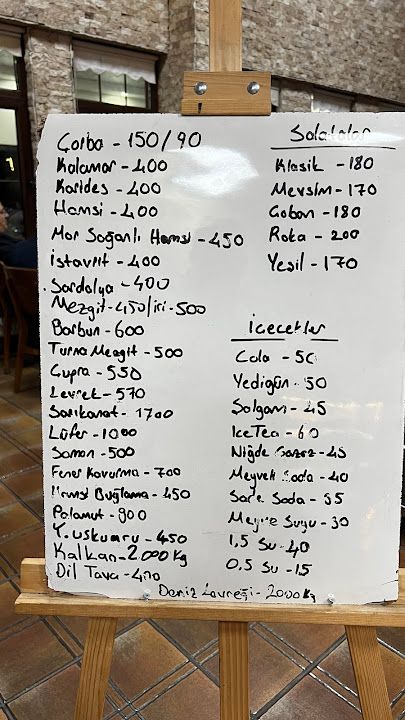 Çorba - 150/90
Kalamar - 400
Karides - 400
Hamsi - 400
Mor Soğanlı Hamsi - 450
İstavrit - 400
Sardalya - 400
Mezgit - 450/iri - 500
Barbun - 600
Turna Mezgit - 500
Çupra - 550
Levrek - 570
Sarıkanat - 1700
Lüfer - 1000
Somon - 500
Fener Kavurma - 700
Hamsi Buğlama - 450
Palamut - 900
Y. uskumru - 450
Kalkan - 2000 Kg
Dil Tava - 400
Deniz Levreği - 2000 Kg
Salatalar
Klasik - 180
Mevsim - 170
Çoban - 180
Roka - 200
Yeşil - 170
İcecekler
Cola - 50
Yedigün - 50
Şalgam - 45
Ice Tea - 60
Niğde Gazoz - 45
Meyveli Soda - 40
Sade Soda - 35
Meyve Suyu - 30
1,5 Su - 40
0,5 Su - 15